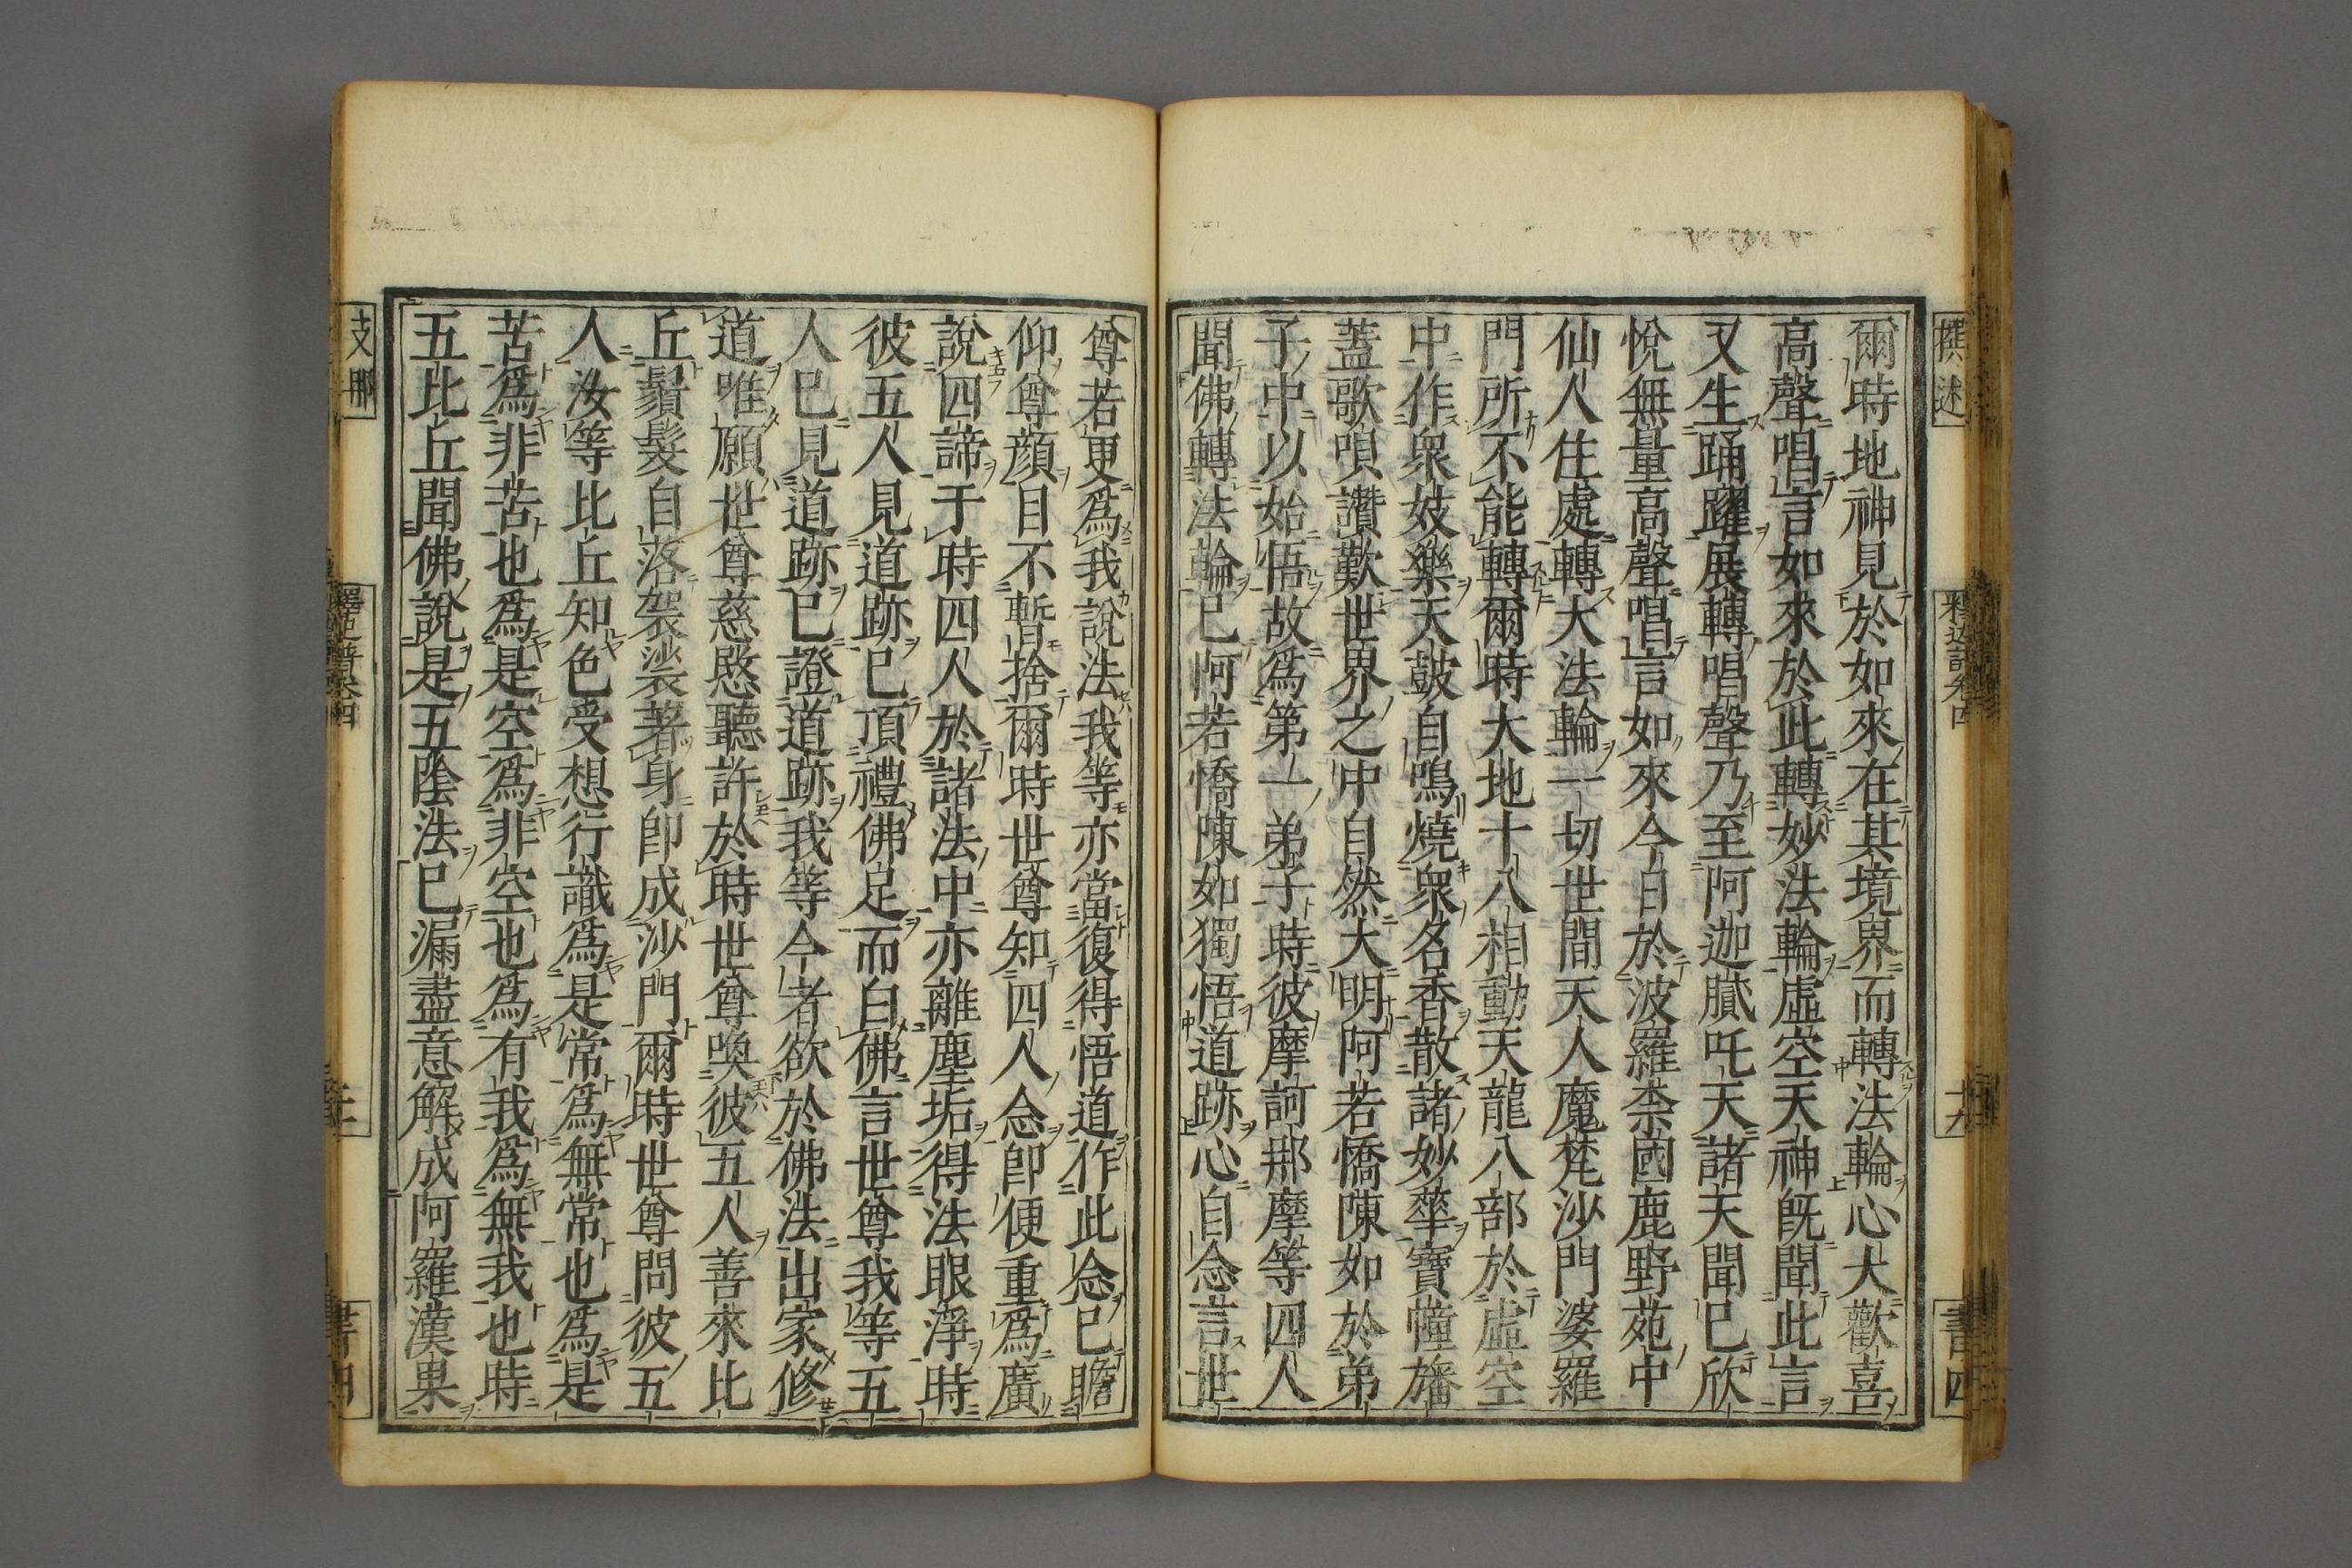 撰述
釋迦譜卷四
十九
書四
爾時地神見於如來在其境界而轉法輪心大歡喜
高聲唱言如來於此轉妙法輪虛空天神旣聞此言
又生踊躍展轉唱聲乃至阿迦膩吒天諸天聞已欣
悅無量高聲唱言如來今日於波羅柰國鹿野苑中
仙人住處轉大法輪一切世間天人魔梵沙門婆羅
門所不能轉爾時大地十八相動天龍八部於虛空
中作衆妓樂天鼓自鳴燒衆名香散諸妙華寶幢旛
蓋歌唄讚歎世界之中自然大明阿若憍陳如於弟
子中以始悟故爲第一弟子時彼摩訶那摩等四人
聞佛轉法輪已阿若憍陳如獨悟道跡心自念言世
尊若更爲我說法我等亦當復得悟道作此念已瞻
仰尊顏目不暫捨爾時世尊知四人念卽便重爲廣
說四諦于時四人於諸法中亦離塵垢得法眼淨時
彼五人見道跡已頂禮佛足而白佛言世尊我等五
人已見道跡已證道跡我等今者欲於佛法出家修
道唯願世尊慈愍聽許於時世尊喚彼五人善來比
丘鬚髮自落袈裟著身卽成沙門爾時世尊問彼五
人汝等比丘知色受想行識爲是常爲無常也爲是
苦爲非苦也爲是空爲非空也爲有我爲無我也時
五比丘聞佛說是五陰法已漏盡意解成阿羅漢果
支那
釋迦譜卷四